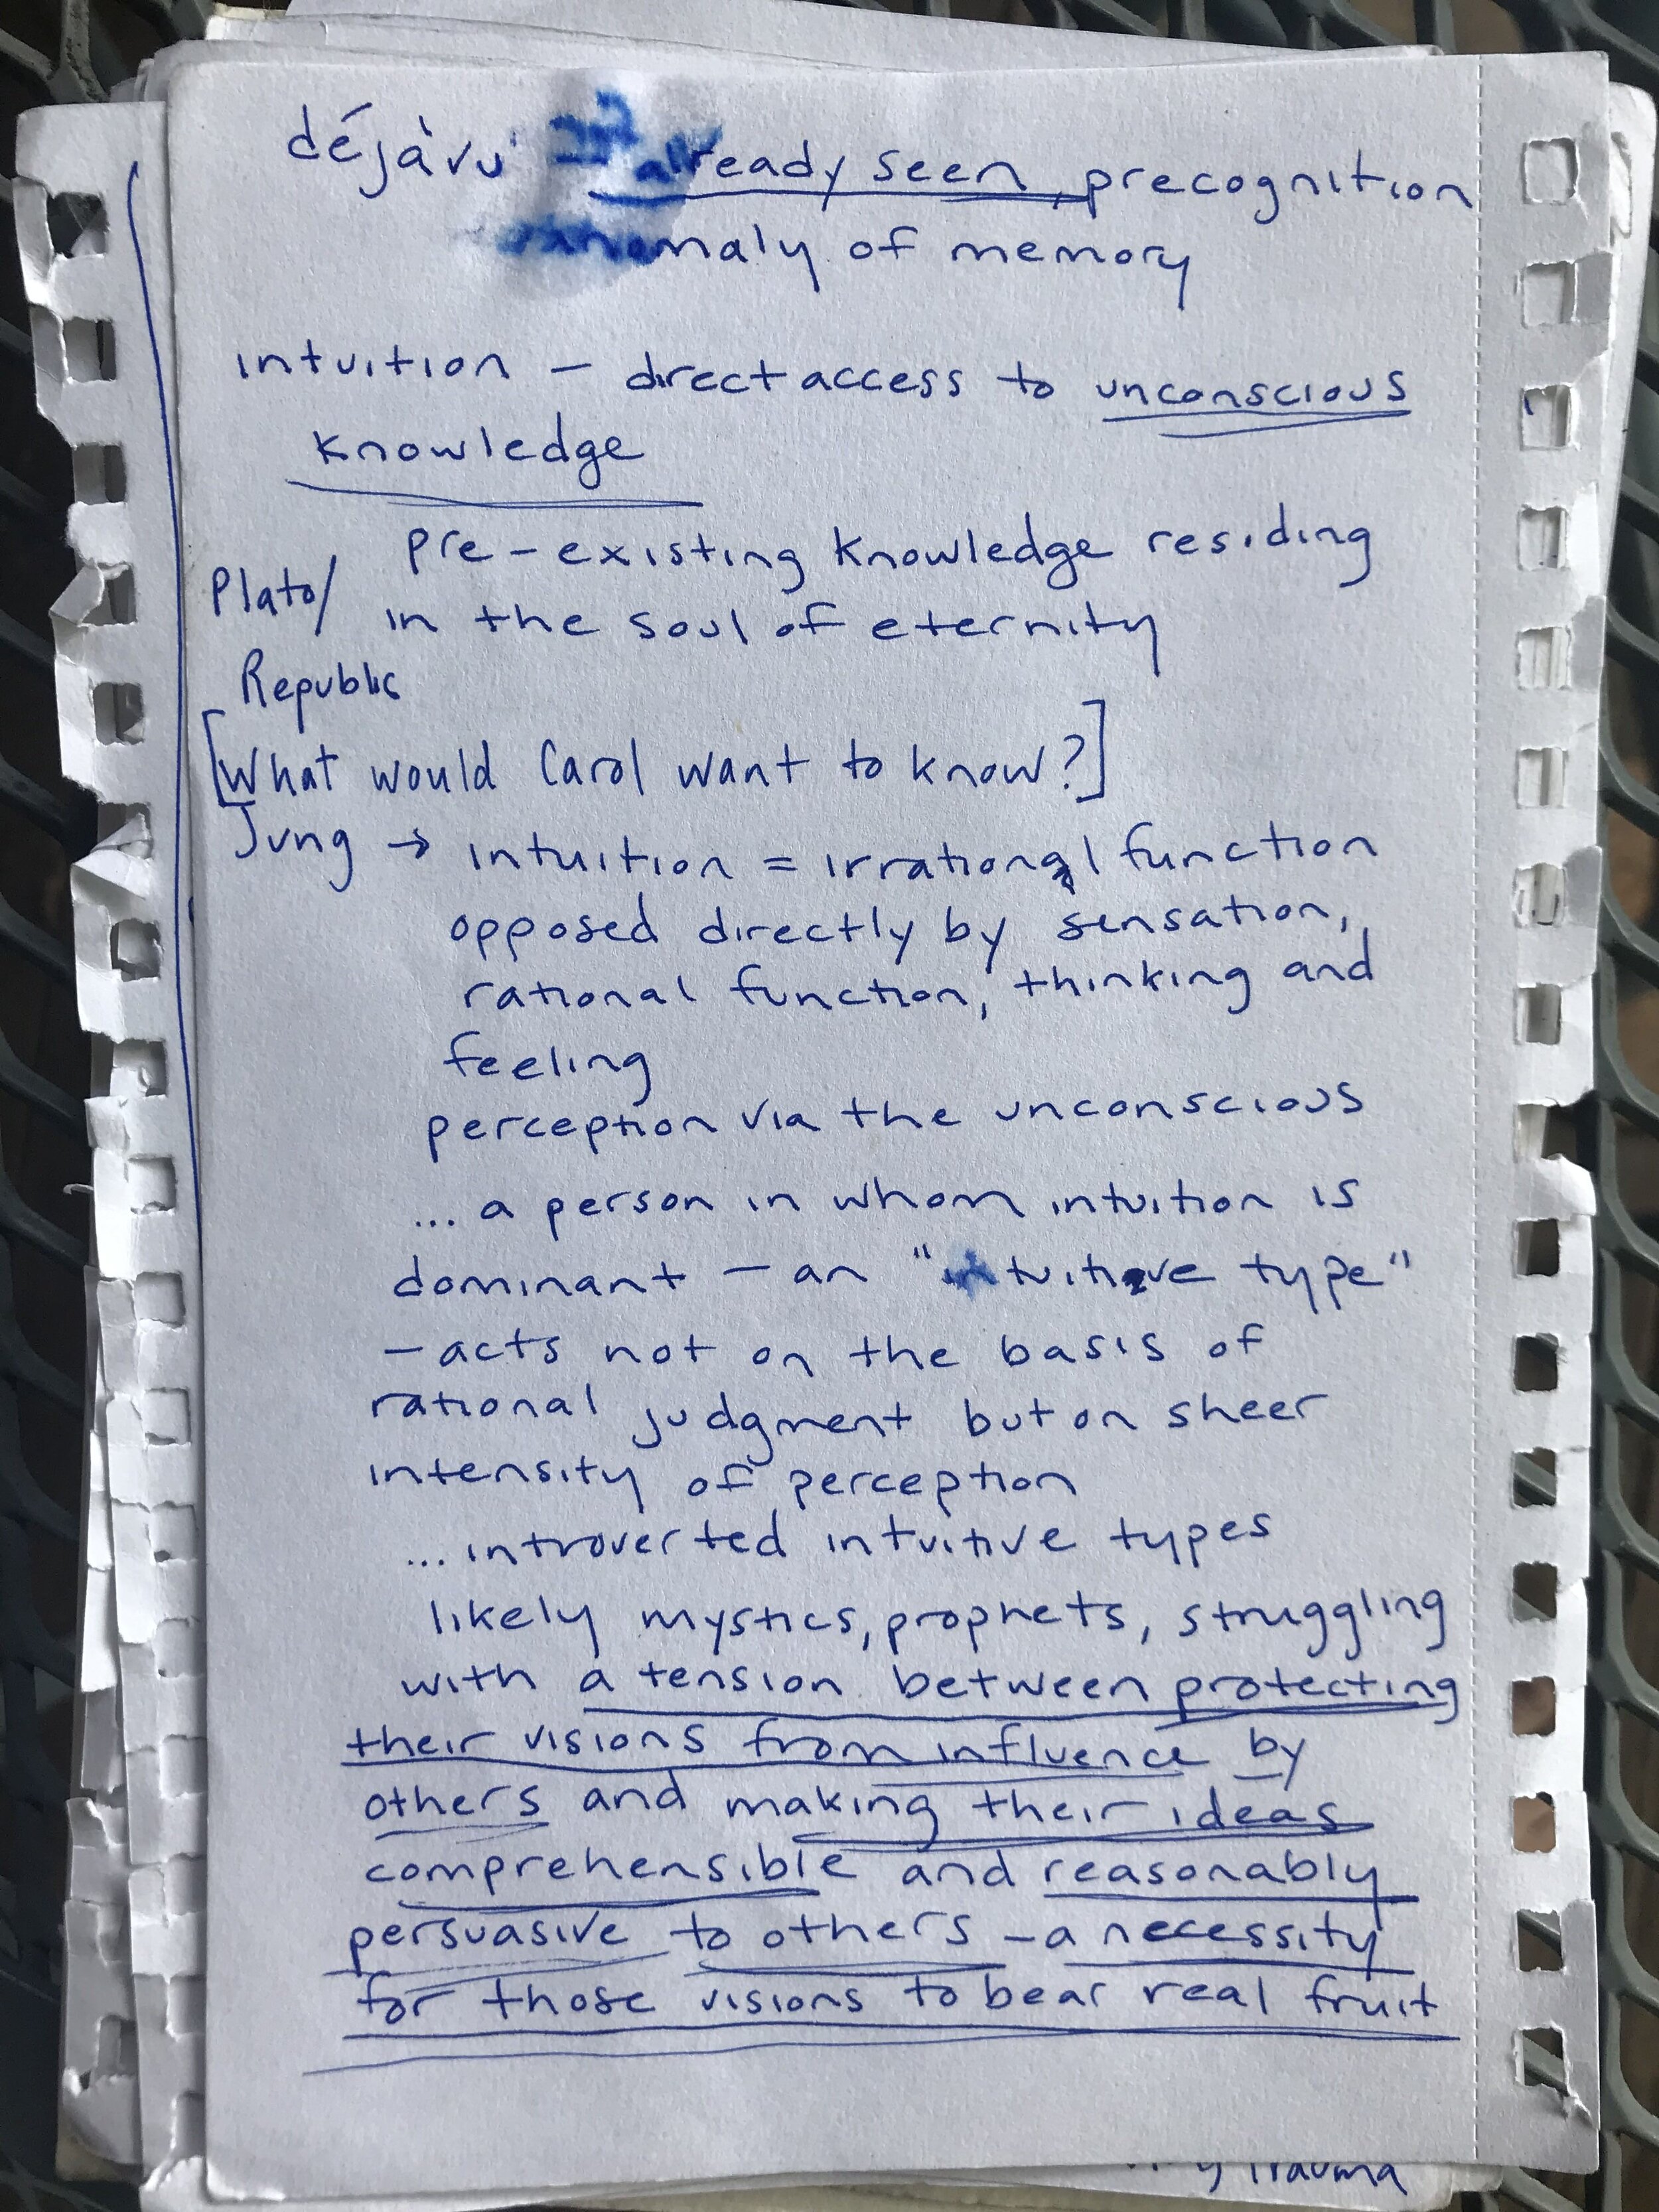 déjà vu already seen, precognition
anomaly of memory
intuition – direct access to unconscious
knowledge
pre-existing knowledge residing
Plato/ in the soul of eternity
Republic
[What would Carol want to know?]
Jung → intuition = irrational function
opposed directly by sensation,
rational function, thinking and
feeling
perception via the unconscious
... a person in whom intuition is
dominant – an "intuitive type"
– acts not on the basis of
rational judgment but on sheer
intensity of perception
... introverted intuitive types
likely mystics, prophets, struggling
with a tension between protecting
their visions from influence by
others and making their ideas
comprehensible and reasonably
persuasive to others – a necessity
for those visions to bear real fruit
Trauma